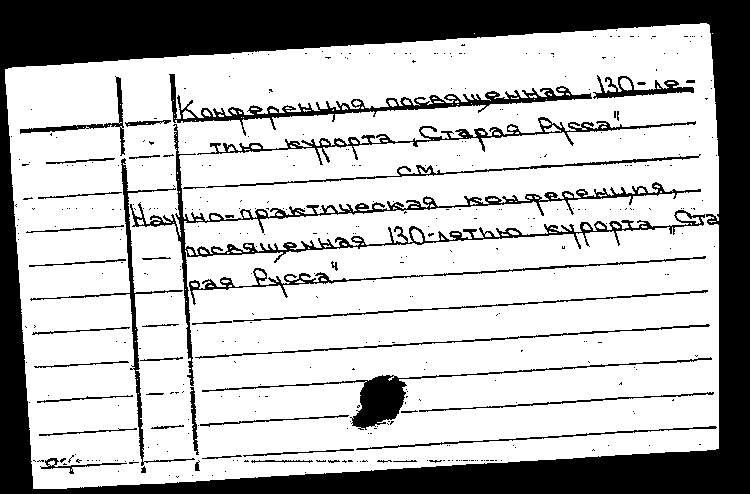 Конференция, посвященная 130-ле-
тию курорта „Старая Русса".
см.
Научно-практическая конференция,
посвященная 130-летию курорта „Ста
рая Русса".